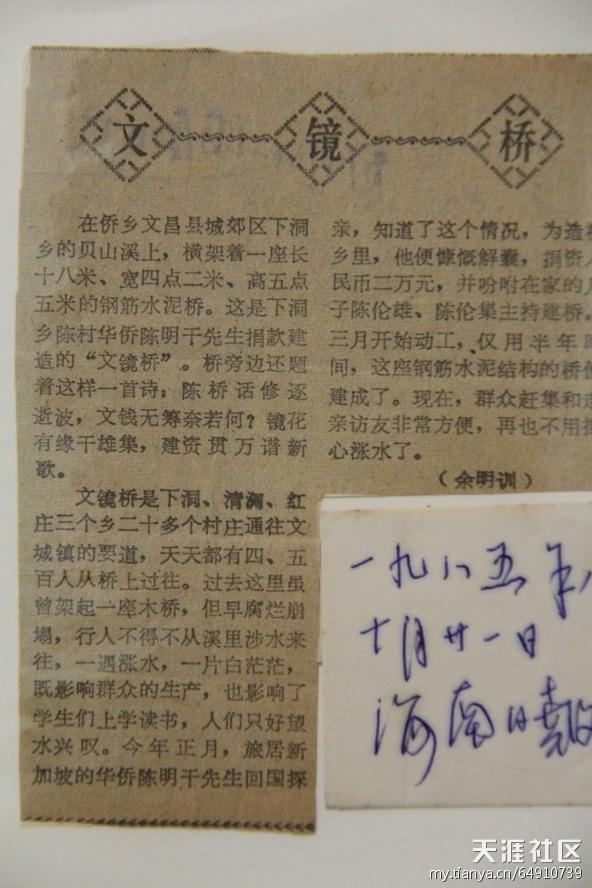 文镜桥
在侨乡文昌县城郊区下洞
乡的贝山溪上，横架着一座长
十八米、宽四点二米、高五点
五米的钢筋水泥桥。这是下洞
乡陈村华侨陈明干先生捐款建
造的“文镜桥”。桥旁边还题
着这样一首诗：陈桥话修逐
逝波，文钱无筹奈若何？镜花
有缘干雄集，建资贯万谱新
歌。
文镜桥是下洞、清澜、红
庄三个乡二十多个村庄通往文
城镇的要道，天天都有四、五
百人从桥上过往。过去这里虽
曾架起一座木桥，但早腐烂崩
塌，行人不得不从溪里涉水来
往，一遇涨水，一片白茫茫，
既影响群众的生产，也影响了
学生们上学读书，人们只好望
水兴叹。今年正月，旅居新
加坡的华侨陈明干先生回国探
亲，知道了这个情况，为造福
乡里，他便慷慨解囊，捐资人
民币二万元，并吩咐在家的儿
子陈伦雄、陈伦集主持建桥。
三月开始动工，仅用半年时
间，这座钢筋水泥结构的桥便
建成了。现在，群众赶集和走
亲访友非常方便，再也不用担
心涨水了。
（余明训）
一九八五年
十月廿一日
海南日报
天涯社区
my.tianya.cn/64910739